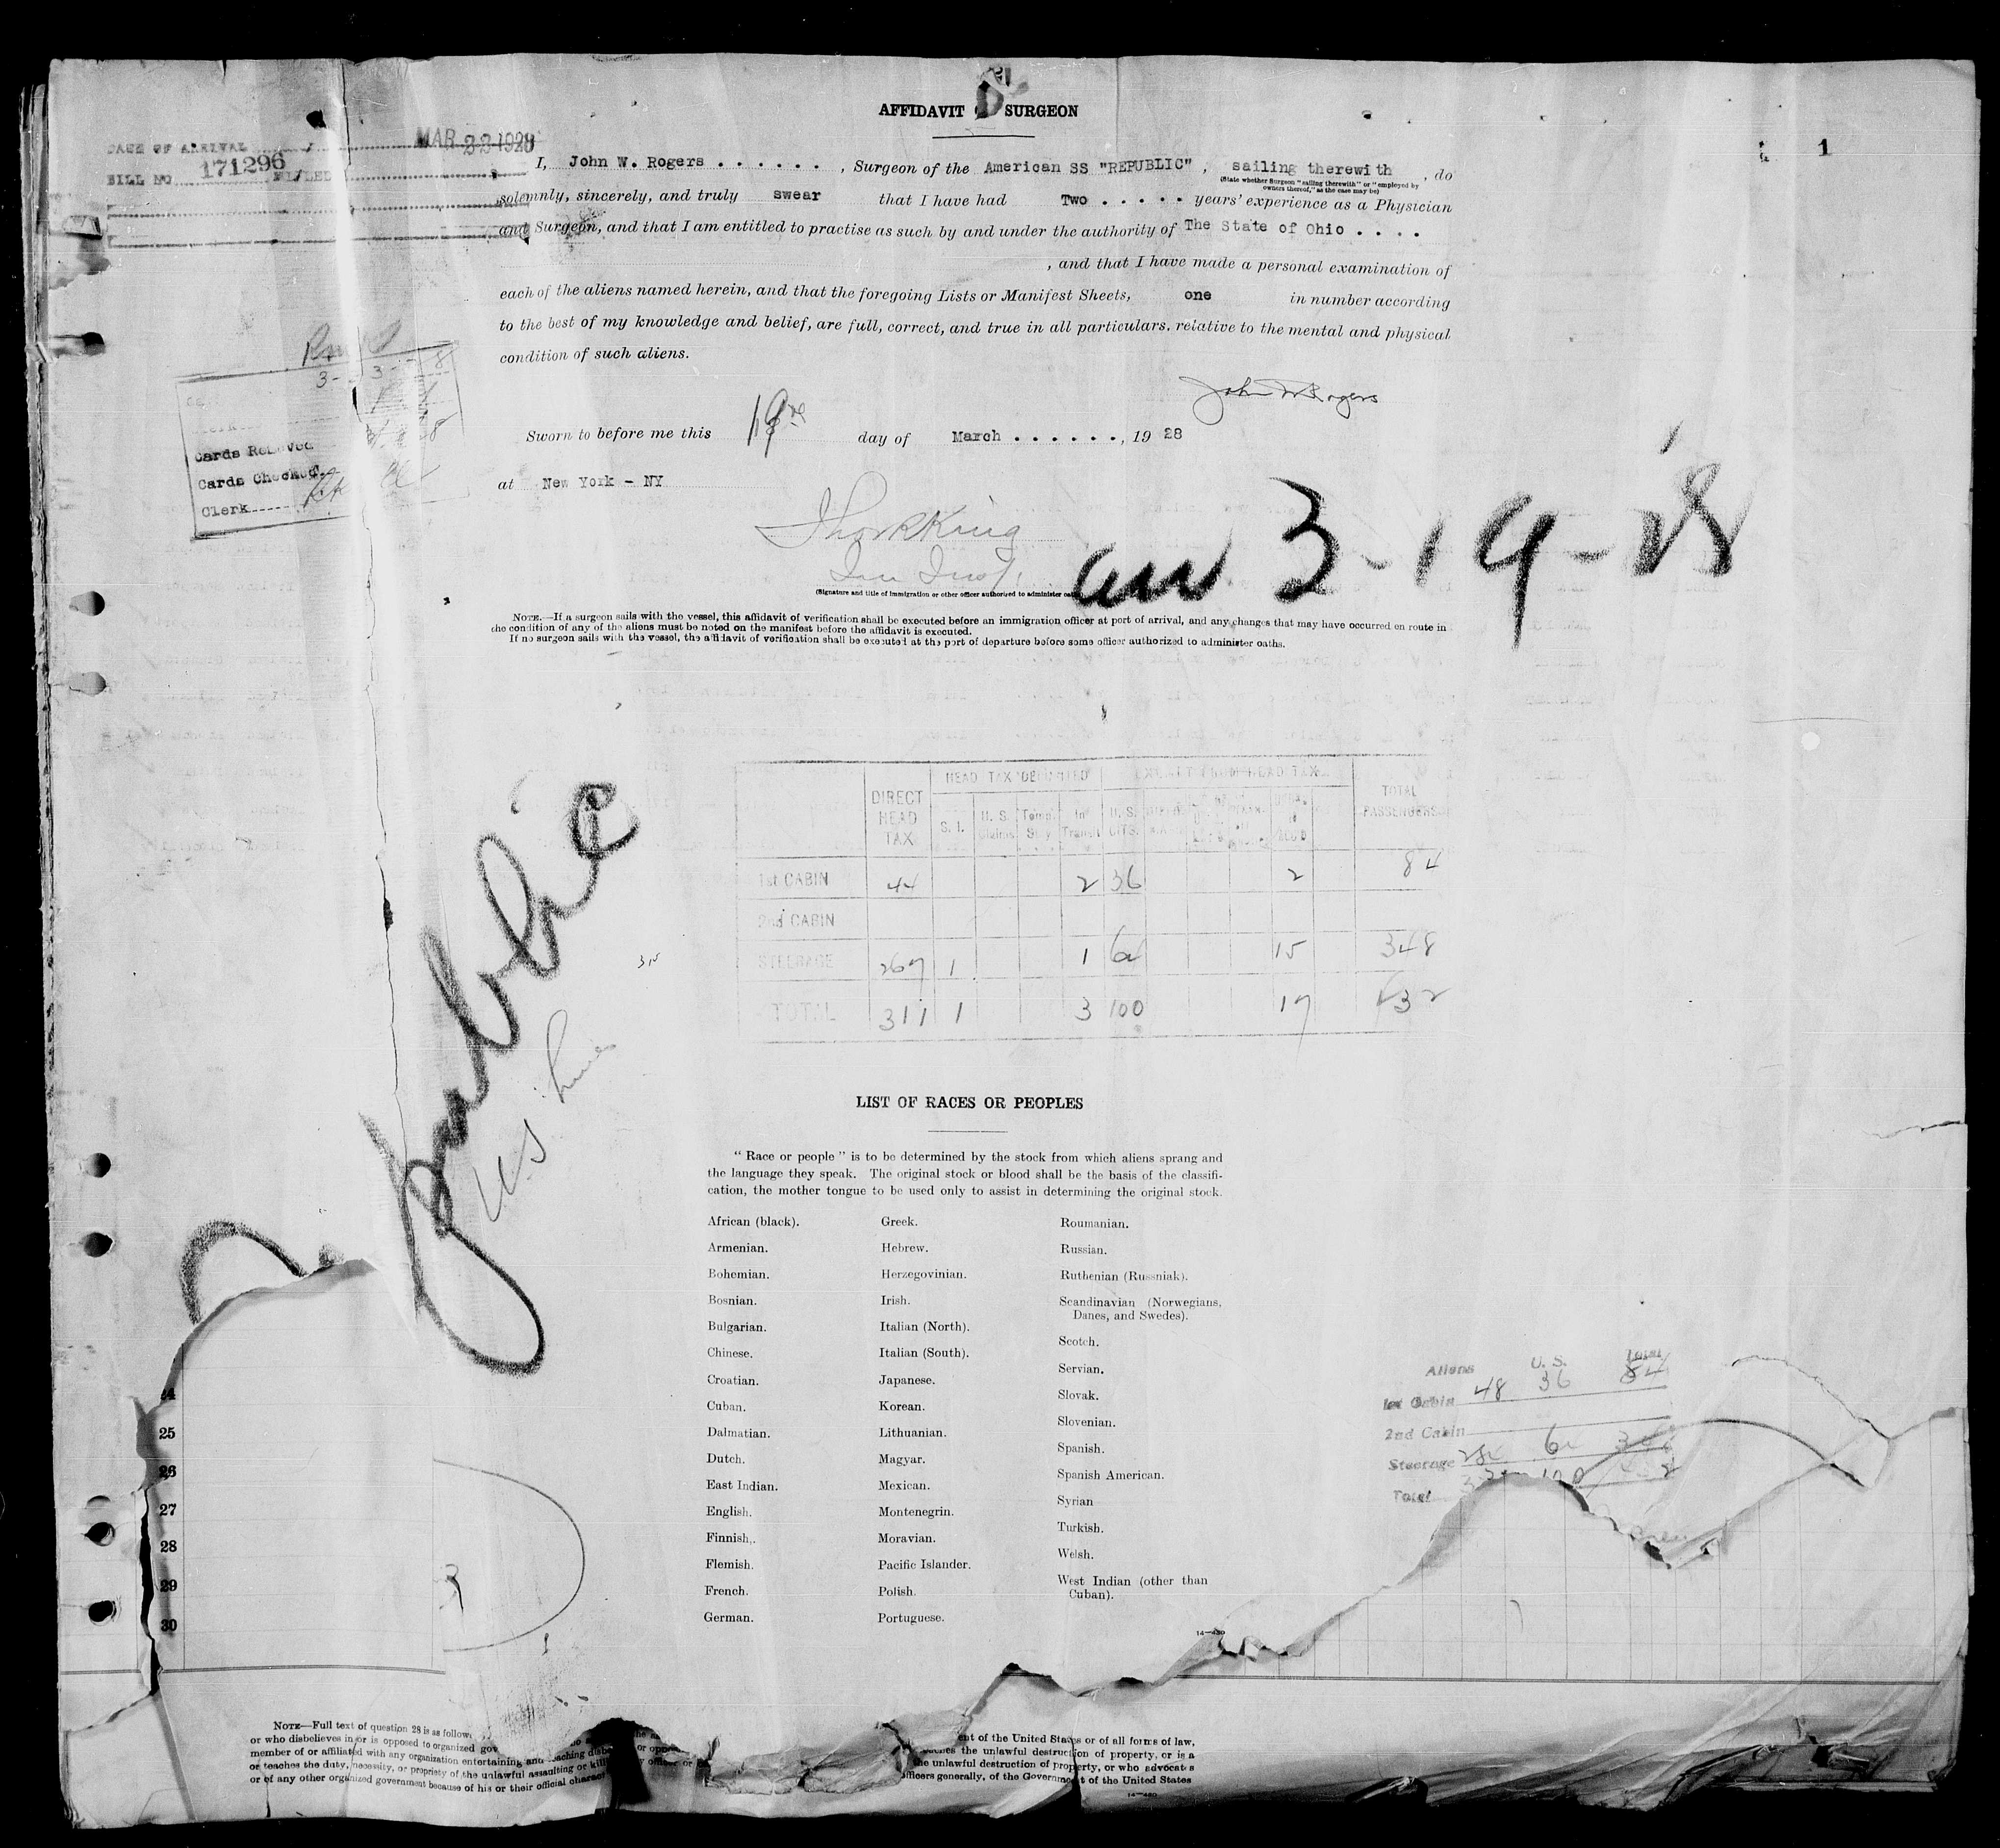 AFFIDAVIT SURGEON
1
DATE OF ARRIVAL MAR 22 1928
BILL NO. 171296 FILED
I, John W. Rogers . . . . . . , Surgeon of the American SS "REPUBLIC" , sailing therewith , do
(State whether Surgeon "sailing therewith" or "employed by
owners thereof," as the case may be)
solemnly, sincerely, and truly swear that I have had Two . . . . . years' experience as a Physician
and Surgeon, and that I am entitled to practise as such by and under the authority of The State of Ohio . . . .
, and that I have made a personal examination of
each of the aliens named herein, and that the foregoing Lists or Manifest Sheets, one in number according
to the best of my knowledge and belief, are full, correct, and true in all particulars, relative to the mental and physical
condition of such aliens.
John W Rogers
Sworn to before me this day of March . . . . . . , 19 28
at New York - NY
Cards Removed
Cards Checked
Clerk
King
(Signature and title of immigration or other officer authorized to administer
3-19-28
NOTE.—If a surgeon sails with the vessel, this affidavit of verification shall be executed before an immigration officer at port of arrival, and any changes that may have occurred en route in
the condition of any of the aliens must be noted on the manifest before the affidavit is executed.
If no surgeon sails with the vessel, the affidavit of verification shall be executed at the port of departure before some officer authorized to administer oaths.
Republic
U.S. Lines
DIRECT HEAD TAX HEAD TAX DEPOSITED EXEMPT FROM HEAD TAX TOTAL PASSENGERS
S. I. U. S. Claims Temp. Stay In Transit U. S. CITS.
1st CABIN 44 2 36 2 84
2nd CABIN
STEERAGE 267 1 1 64 15 348
TOTAL 311 1 3 100 17 432
LIST OF RACES OR PEOPLES
"Race or people" is to be determined by the stock from which aliens sprang and
the language they speak. The original stock or blood shall be the basis of the classifi-
cation, the mother tongue to be used only to assist in determining the original stock.
African (black).
Armenian.
Bohemian.
Bosnian.
Bulgarian.
Chinese.
Croatian.
Cuban.
Dalmatian.
Dutch.
East Indian.
English.
Finnish.
Flemish.
French.
German.
Greek.
Hebrew.
Herzegovinian.
Irish.
Italian (North).
Italian (South).
Japanese.
Korean.
Lithuanian.
Magyar.
Mexican.
Montenegrin.
Moravian.
Pacific Islander.
Polish.
Portuguese.
Roumanian.
Russian.
Ruthenian (Russniak).
Scandinavian (Norwegians,
Danes, and Swedes).
Scotch.
Servian.
Slovak.
Slovenian.
Spanish.
Spanish American.
Syrian
Turkish.
Welsh.
West Indian (other than
Cuban).
14—430
Aliens U. S. Total
1st Cabin 48 36 84
2nd Cabin
Steerage
Total
24
25
26
27
28
29
30
NOTE—Full text of question 28 is as follows
or who disbelieves in or is opposed to organized gov
member of or affiliated with any organization entertaining and teaching disbe or oppo
or teaches the duty, necessity, or propriety of the unlawful assaulting or kill officer or
or of any other organized government because of his or their official charact
ent of the United States or of all forms of law,
the unlawful destruction of property, or is a
the unlawful destruction of property, or who advocates
officers generally, of the Government of the United States
14—430